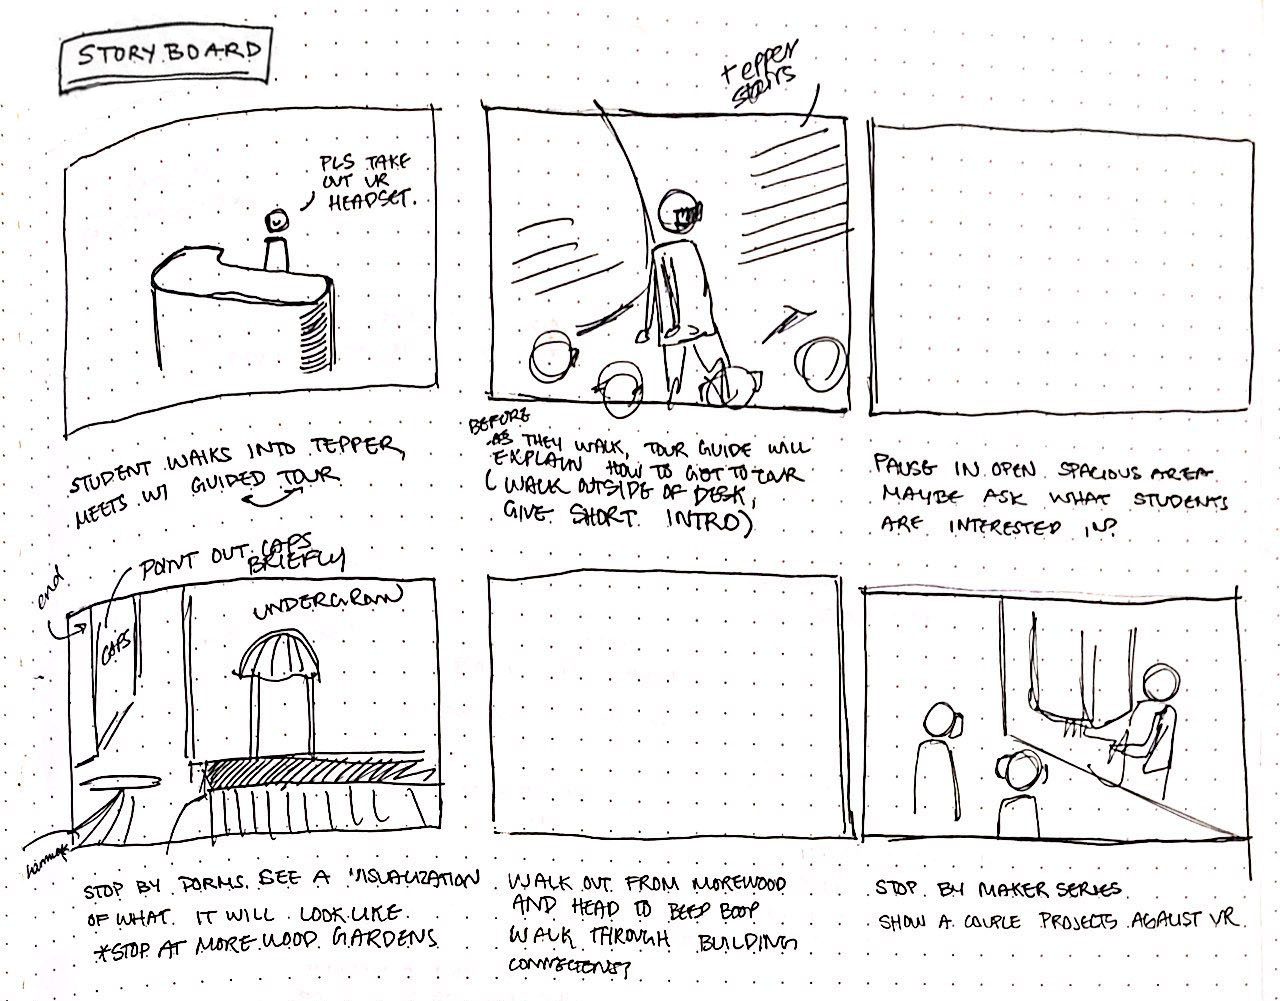 STORYBOARD
PLS TAKE
OUT VR
HEADSET.
STUDENT WALKS INTO TEPPER,
MEETS W/ GUIDED TOUR
tepper
stairs
BEFORE
AS THEY WALK, TOUR GUIDE WILL
EXPLAIN HOW TO GET TO TOUR
(WALK OUTSIDE OF DESK,
GIVE SHORT INTRO)
PAUSE IN OPEN SPACIOUS AREA
MAYBE ASK WHAT STUDENTS
ARE INTERESTED IN?
end
POINT OUT CAPS
BRIEFLY
CAPS
UNDERGRAW
STOP BY DORMS. SEE A VISUALIZATION
OF WHAT IT WILL LOOK LIKE.
*STOP AT MOREWOOD GARDENS
WALK OUT FROM MOREWOOD
AND HEAD TO BEEP BOOP
WALK THROUGH BUILDING
STOP BY MAKER SERIES.
SHOW A COUPLE PROJECTS AGAIST VR.